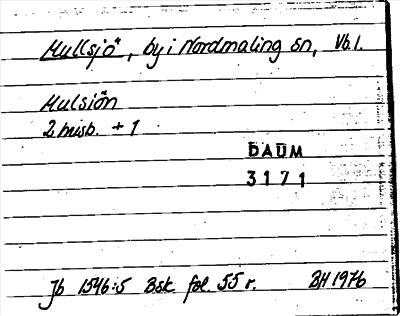 Mullsjö, by i Nordmaling sn, Vb.l.
Mulsiön
2 misb. + 1
DAUM
3171
Jb 1546:5 Bsk. fol. 55 r. BH 1976